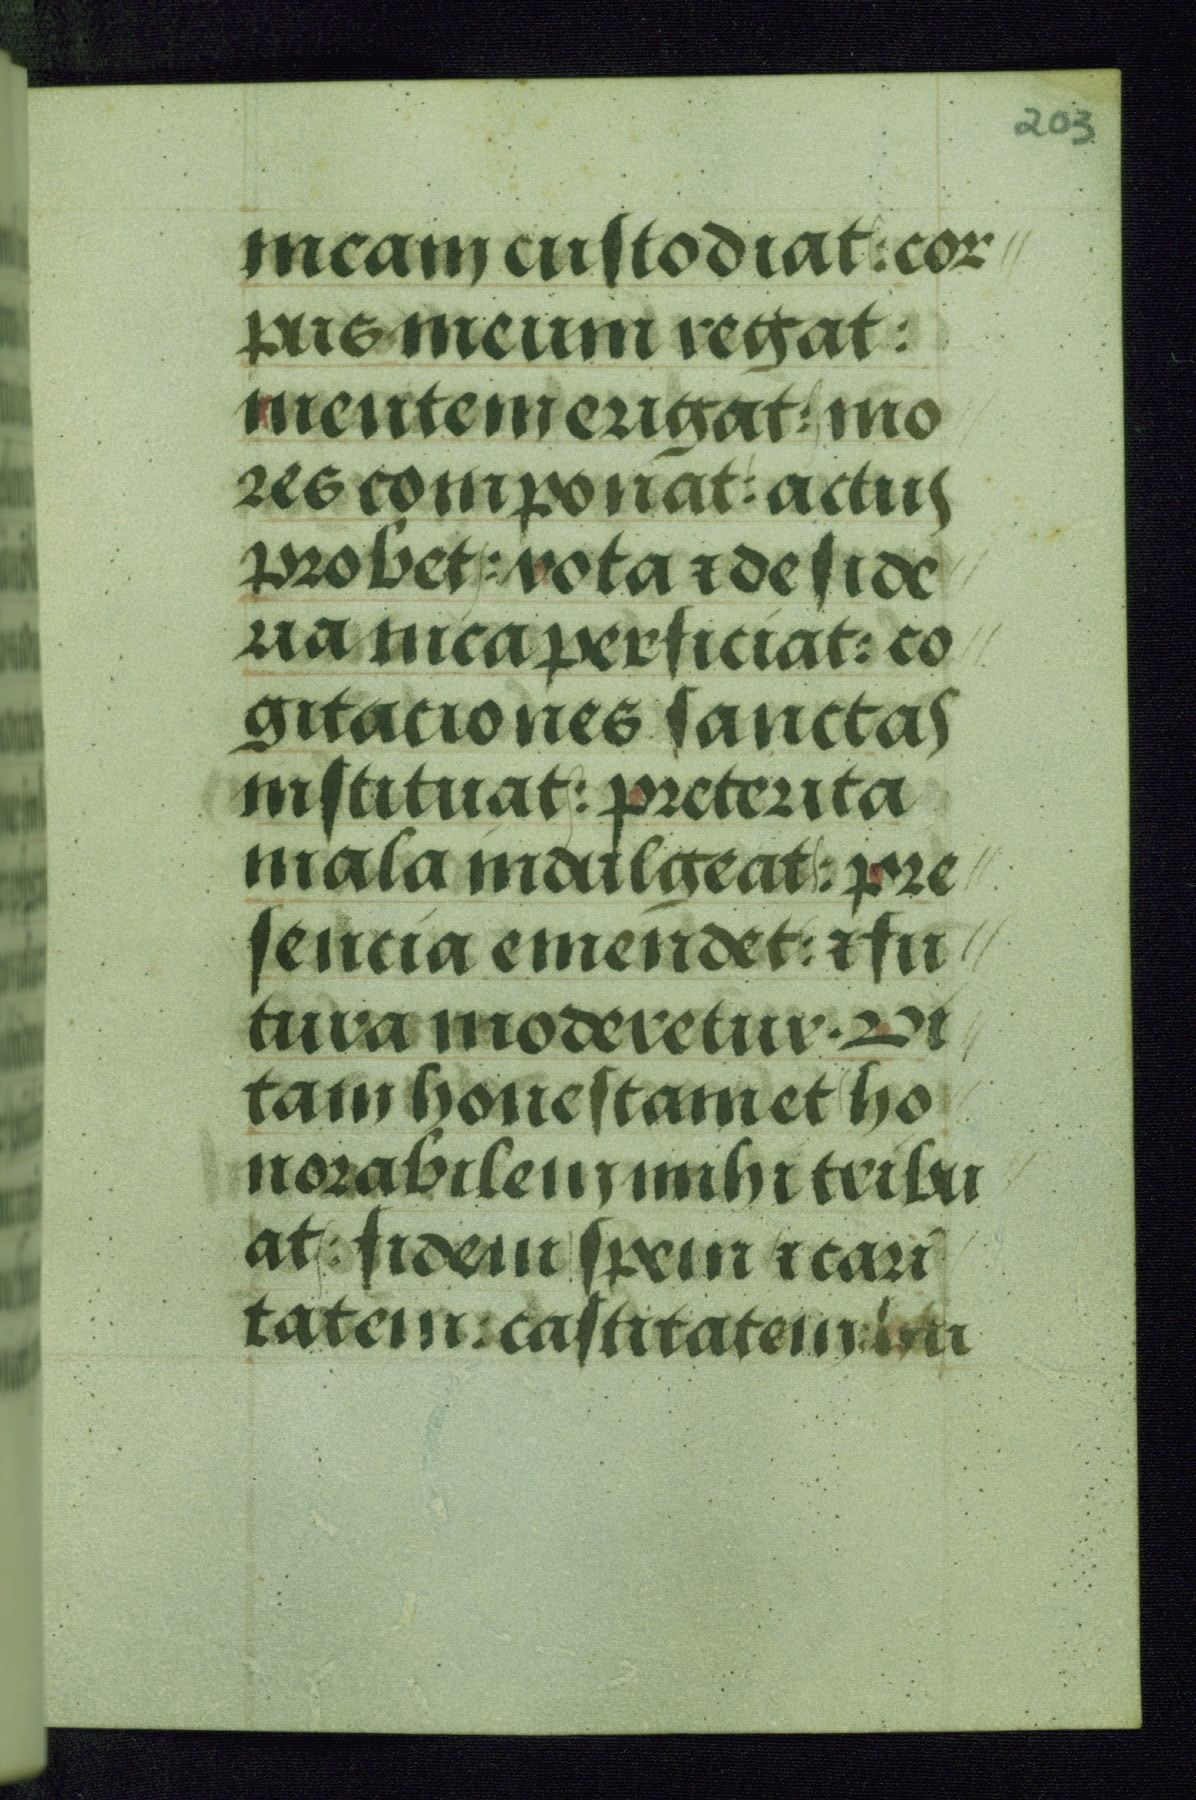 203
meam custodiat: cor//
pus meum regat:
mentem erigat: mo
res componat: actus
probet: vota ⁊ deside//
ria mea perficiat: co//
gitaciones sanctas
instituat: preterita
mala indulgeat: pre//
sencia emendet: ⁊ fu//
tura moderetur. Vi//
tam honestam et ho
norabilem mihi tribu
at: fidem spem ⁊ cari
tatem: castitatem: